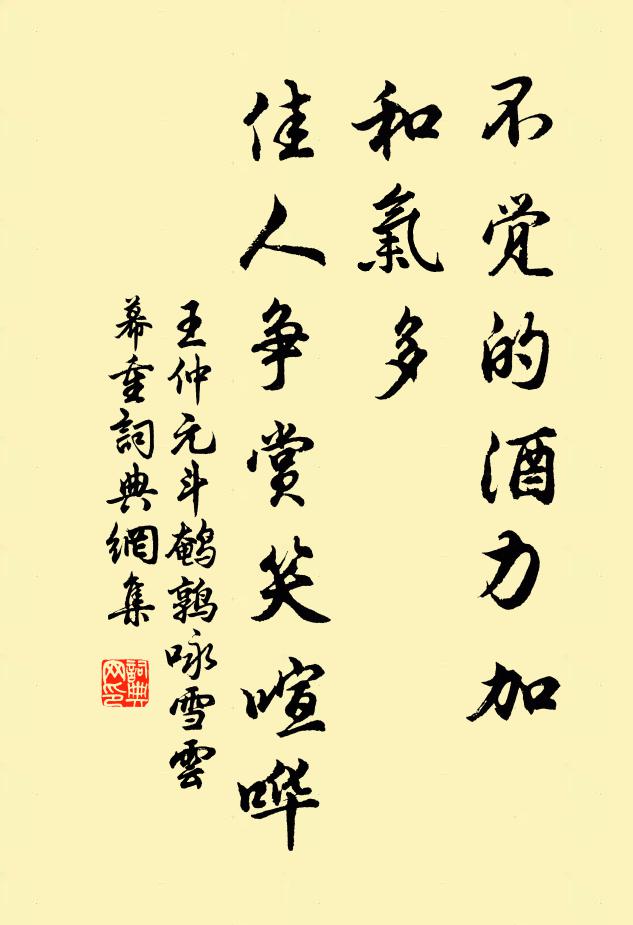 不觉的酒力加
和氣多
佳人争赏笑喧哗
王仲元斗鹌鹑咏雪雲
幕重詞典網集
詞典
网印